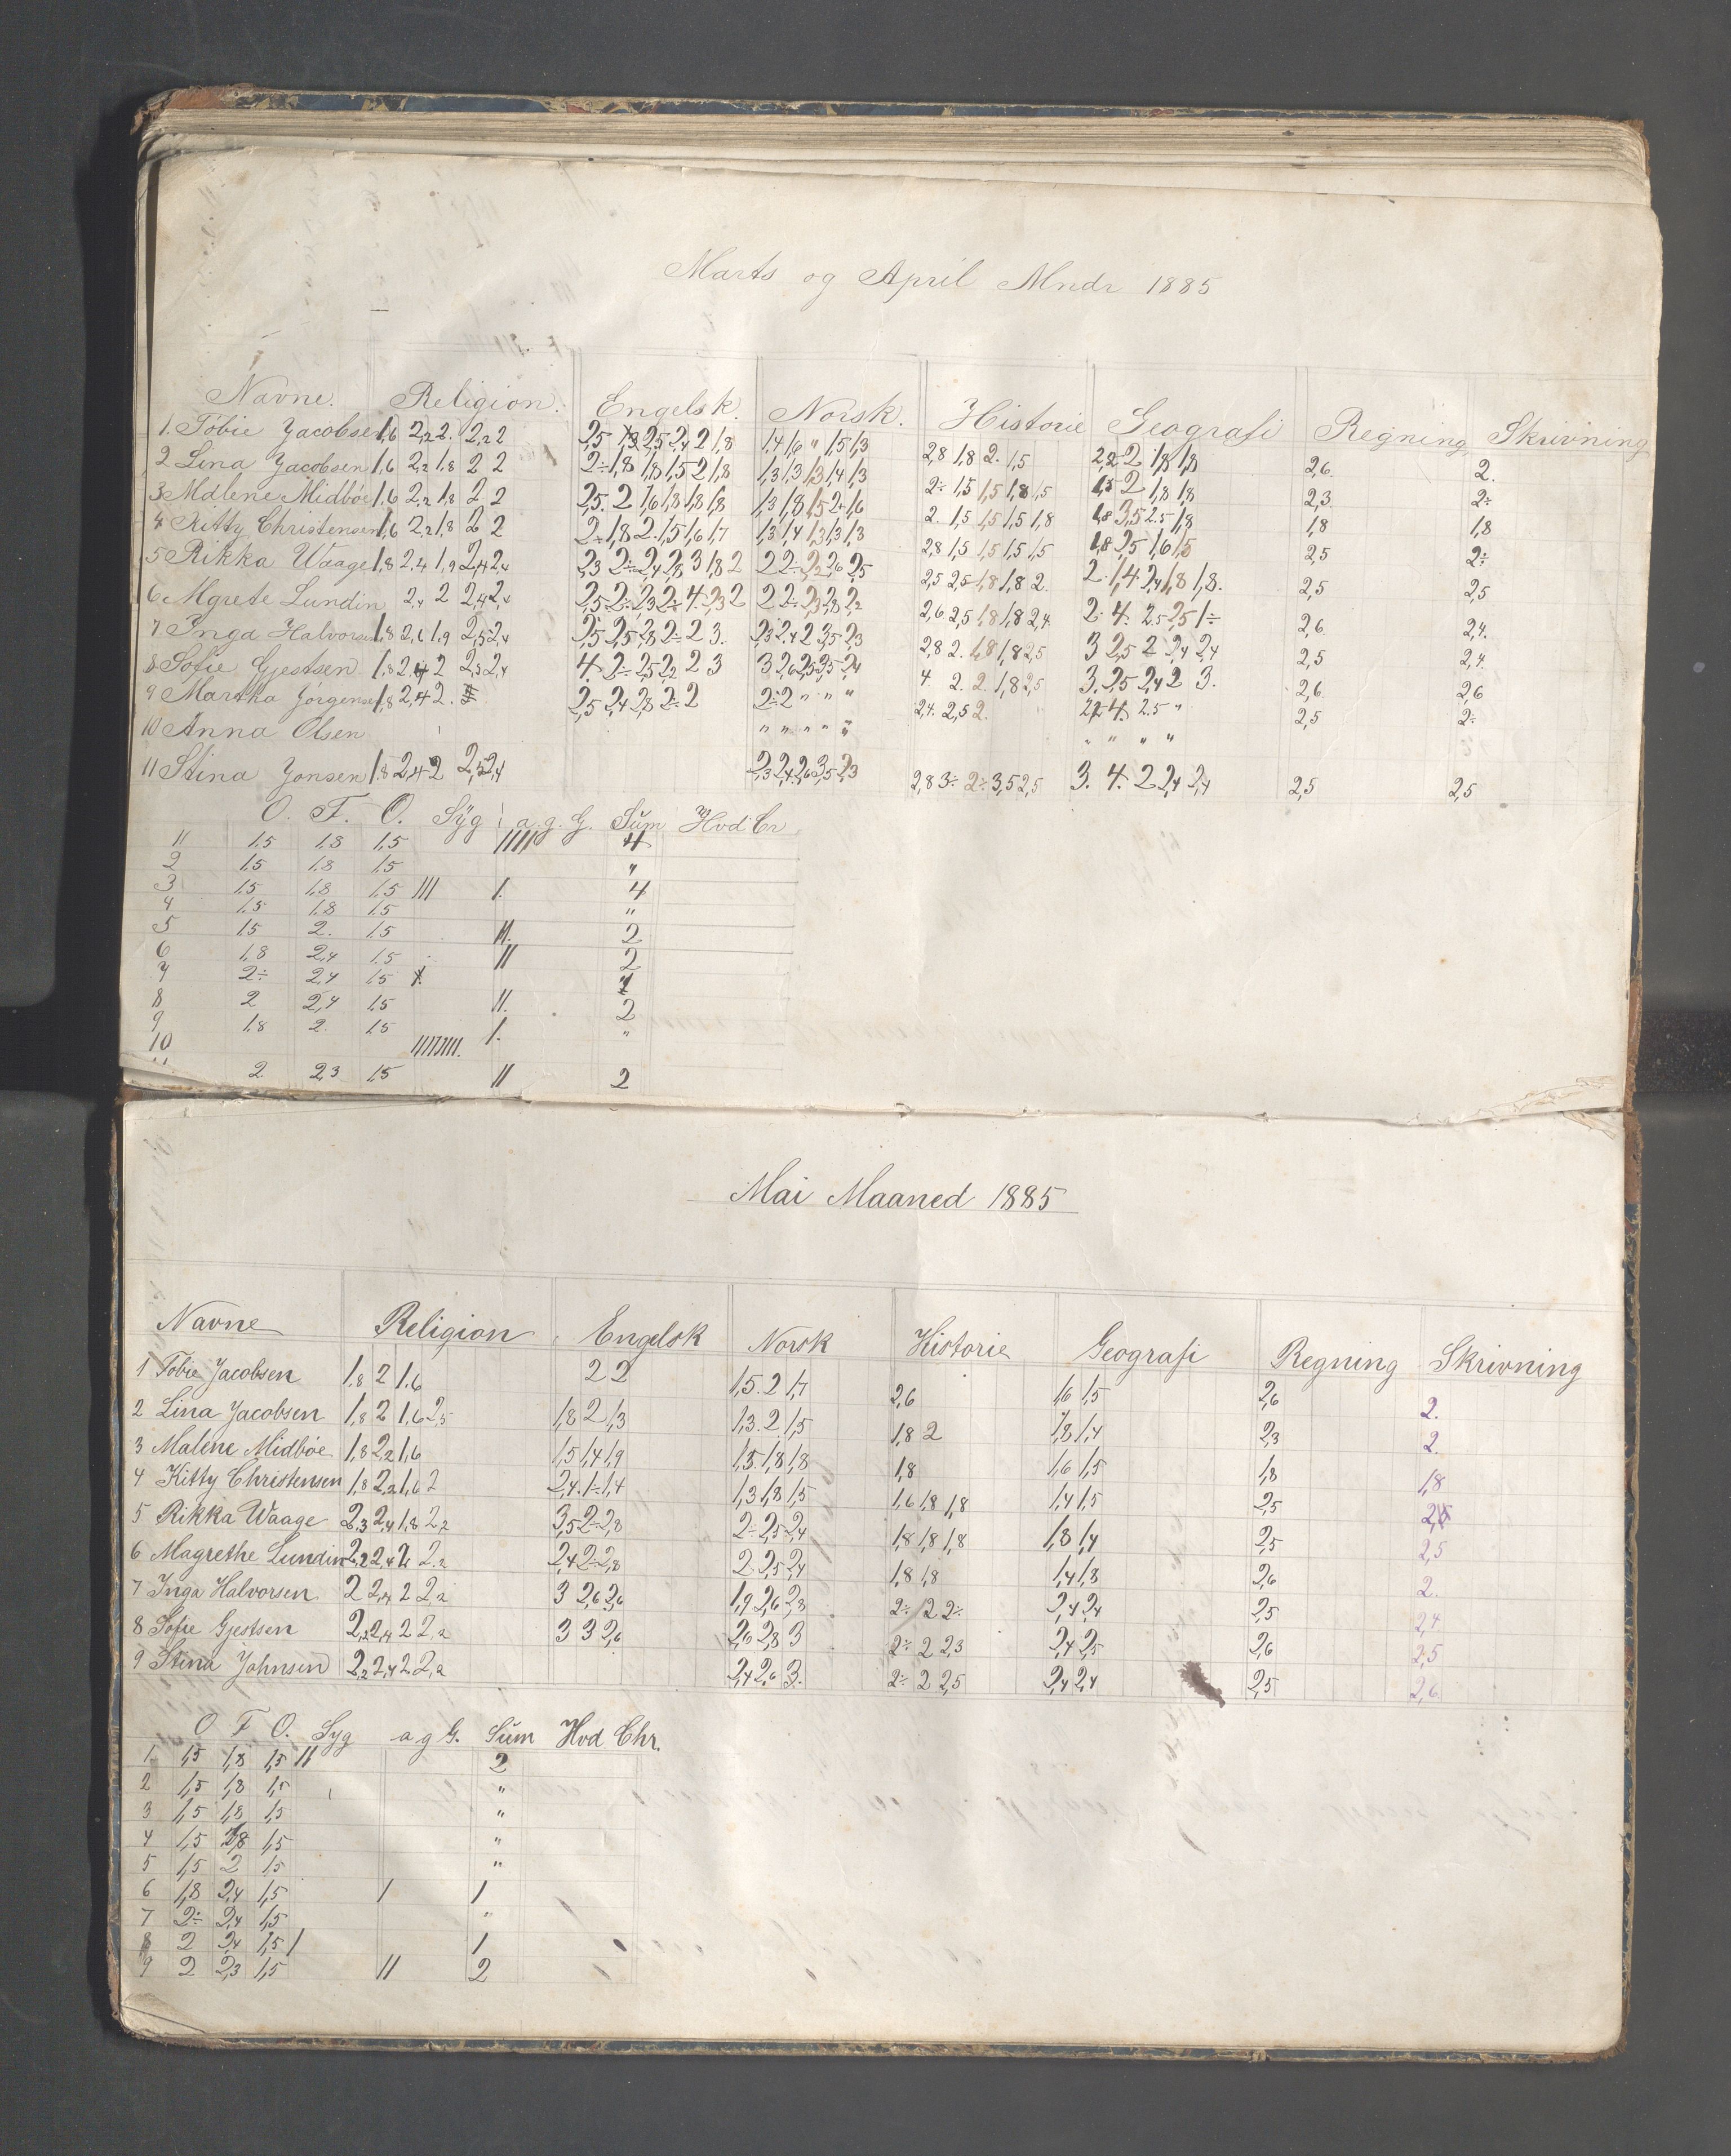 Marts og April Mndr 1885
Navne. Religion. Engelsk. Norsk. Historie Geografi Regning Skrivning
1. Tobie Jacobsen 1,6 2,2 2. 2,2 2 1,4 1,6 " 1,5 1,3 2,8 1,8 2. 1,5 2,6 2.
2 Lina Jacobsen 1,6 2,2 1,8 2 2 2÷ 1,8 1,8 1,5 2 1,8 1,3 1,3 1,3 1,4 1,3 2÷ 1,5 1,5 1,8 1,5 2,3 2÷
3 Malene Midbøe 1,6 2,2 1,8 2 2 2,5. 2 1,6 1,8 1,8 1,8 1,3 1,8 1,5 2,4 1,6 2. 1,5 1,5 1,5 1,8 1,8 3,5 2.5 1,8 1,8 1,8
4 Kitty Christensen 1,6 2,2 1,8 2 2 2÷ 1,8 2. 1,5 1,6 1,7 1,3 1,4 1,3 1,3 1,3 2,8 1,5 1,5 1,5 1,5 1,8 2,5 1,6 1,5 2,5 2÷
5 Rikka Waage 1,8 2,4 1,9 2,4 2,4 2,3 2÷ 2,4 2,8 3 1,8 2 2 2÷ 2,2 2,6 2,5 2,5 2,5 1,8 1,8 2. 2 1,4 2,4 1,8 1,8. 2,5 2,5
6 Mgrete Lundin 2,4 2 2,4 2,4 2,5 2÷ 2,3 2÷ 4. 2,3 2 2 2÷ 2,3 2,8 2,2 2,6 2,5 1,8 1,8 2,4. 2. 4. 2.5 2,5 1÷ 2,6 2,4.
7. Inga Halvorsen 1,8 2,6 1,9 2,5 2,4 2,5 2,5 2,8 2÷ 2 3. 2,3 2.4 2 3,5 2,3 2,8 2. 1,8 1,8 2,5 3 2,5 2 2,4 2,4 2,5 2,4.
8 Sofie Gjestsen 1,8 2,4 2 2,3 2,4 4. 2÷ 2,5 2,2 2 3 3 2,6 2,5 3,5 2,4 4 2. 2. 1,8 2,5 3. 2,5 2,4 2 3. 2,6 2,6
9 Martha Jørgensen 1,8 2,4 2. 2,5 2,4 2,8 2÷ 2 2÷ 2 " " " 2,4. 2,5 2. 2,4 4. 2.5 " 2,5 2÷
10 Anna Olsen " " " " " " " " "
11 Stina Jonsen 1,8 2,4 2 2,5 2,4 2,3 2,4 2,6 3,5 2,3 2,8 3÷ 2÷ 3,5 2,5 3. 4. 2 2,4 2,4 2,5 2,5
O. F. O. Syg a. g. G. Sum Hvd Cr
11 1,5 1,8 1,5 //// 4
2 1,5 1,8 1,5 "
3 1,5 1,8 1,5 /// 1. 4
4 1,5 1,8 1,5 "
5 1,5 2. 1,5 //. 2
6 1,8 2,4 1,5 // 2
7 2÷ 2,4 1,5 1
8 2 2,4 1,5 //. 2
9 1,8 2. 1,5 1. "
10 ////////.
11 2 2,3 1,5 // 2
Mai Maaned 1885
Navne Religion Engelsk Norsk Historie Geografi Regning Skrivning
1 Tobie Jacobsen 1,8 2 1,6 2 2 1,5. 2 1,7 2,6 1,6 1,5 2,6 2.
2 Lina Jacobsen 1,8 2 1,6 2,5 1,8 2 1,3 1,3. 2 1,5 1,8 2 1,8 1,4 2,3 2.
3 Malene Midbøe 1,8 2,2 1,6 1,5 1,4 1,9 1,5. 1,8 1,8 1,8 1,6 1,5 1,8 1,8
4 Kitty Christensen 1,8 2,2 1,6 2 2,4. 1÷ 1,4 1,3 1,8 1,5 1,6 1,8 1,8 1,4 1,5 2,5
5 Rikka Waage 2,3 2,4 1,8 2,2 3,5 2÷ 2,8 2÷ 2,5 2,4 1,8 1,8 1,8 1,8 1,4 2,5 2,5
6 Magrethe Lundin 2,2 2,4 2 2,2 2,4 2÷ 2,8 2 2,5 2,4 1,8 1,8 1,4 1,8 2,6 2.
7 Inga Halvorsen 2 2,4 2 2,2 3 2,6 2,6 1,9 2,6 2,8 2÷ 2 2÷ 2,4 2,4 2,5 2,4
8 Sofie Gjestsen 2,2 2,4 2 2,2 3 3 2,6 2,6 2,8 3 2÷ 2 2,3 2,4 2,5 2,6 2,5
9 Stina Johnsen 2,2 2,4 2 2,2 2,4 2,6 3. 2÷ 2 2,5 2,4 2,4 2,5 2,6
O F O. Syg a g G. Sum Hvd Chr.
1. 1,5 1,8 1,5 // 2
2 1,5 1,8 1,5 "
3 1,5 1,8 1,5 "
4 1,5 1,8 1,5 "
5 1,5 2 1,5 "
6 1,8 2,4 1,5 / 1
7 2÷ 2,4 1,5 "
8 2 2,4 1,5 / 1
9 2 2,3 1,5 // 2